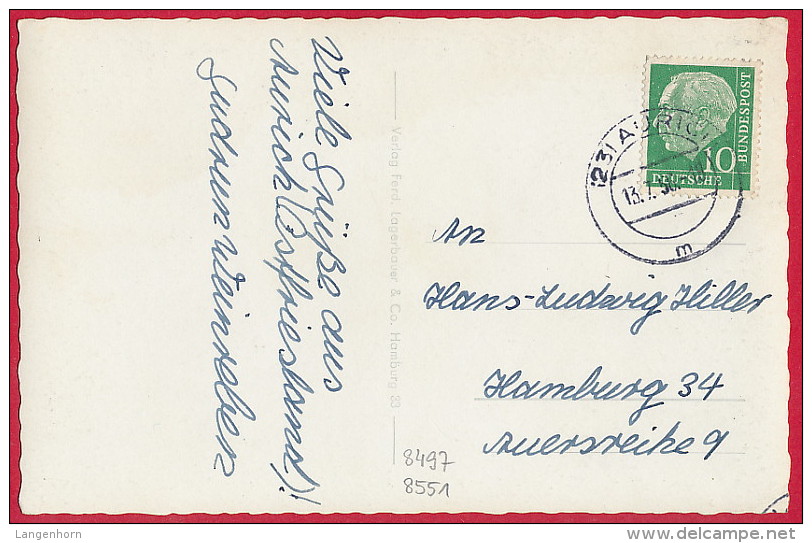 Viele Grüße aus
Aurich (Ostfriesland)!
Gudrun Weinreber
Verlag Ferd. Lagerbauer & Co. Hamburg 83
DEUTSCHE
BUNDESPOST
10
(23) AURICH
13.7.56
m
An
Hans-Ludwig Hiller
Hamburg 34
Auersreihe 9
8497
8551
Langenhorn
www.delcampe.net